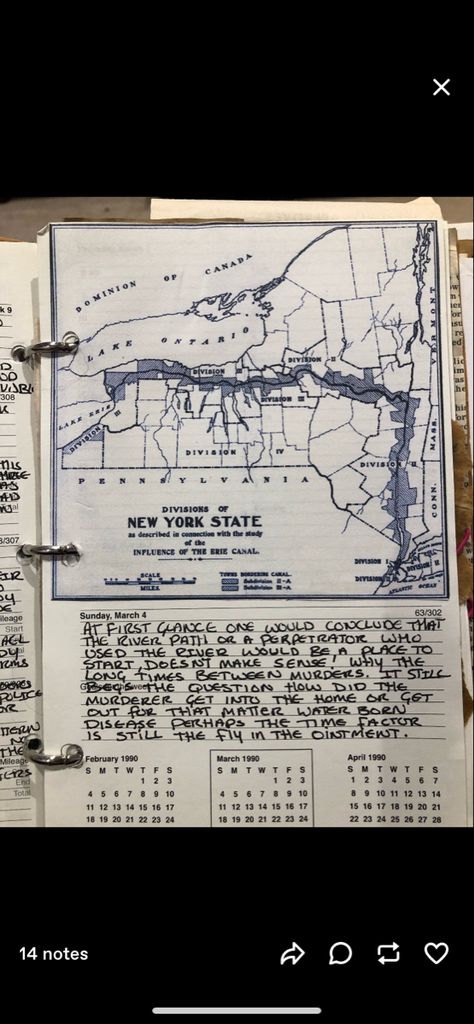 DOMINION OF CANADA
LAKE ONTARIO
LAKE ERIE
DIVISION III
DIVISION II
DIVISION III
DIVISION III
DIVISION IV
DIVISION II
PENNSYLVANIA
VERMONT
MASS.
CONN.
DIVISIONS OF
NEW YORK STATE
as described in connection with the study
of the
INFLUENCE OF THE ERIE CANAL.
SCALE
MILES.
TOWNS BORDERING CANAL.
Subdivision II-A
Subdivision III-A
DIVISION I
DIVISION II
ATLANTIC OCEAN
Sunday, March 4 63/302
AT FIRST GLANCE ONE WOULD CONCLUDE THAT
THE RIVER PATH OR A PERPETRATOR WHO
USED THE RIVER WOULD BE A PLACE TO
START, DOESN'T MAKE SENSE! WHY THE
LONG TIMES BETWEEN MURDERS. IT STILL
BEGS THE QUESTION HOW DID THE
MURDERER GET INTO THE HOME OR GET
OUT FOR THAT MATTER WATER BORN
DISEASE PERHAPS THE TIME FACTOR
IS STILL THE FLY IN THE OINTMENT.
February 1990 March 1990 April 1990
S M T W T F S S M T W T F S S M T W T F S
1 2 3 1 2 3 1 2 3 4 5 6 7
4 5 6 7 8 9 10 4 5 6 7 8 9 10 8 9 10 11 12 13 14
11 12 13 14 15 16 17 11 12 13 14 15 16 17 15 16 17 18 19 20 21
18 19 20 21 22 23 24 18 19 20 21 22 23 24 22 23 24 25 26 27 28
14 notes